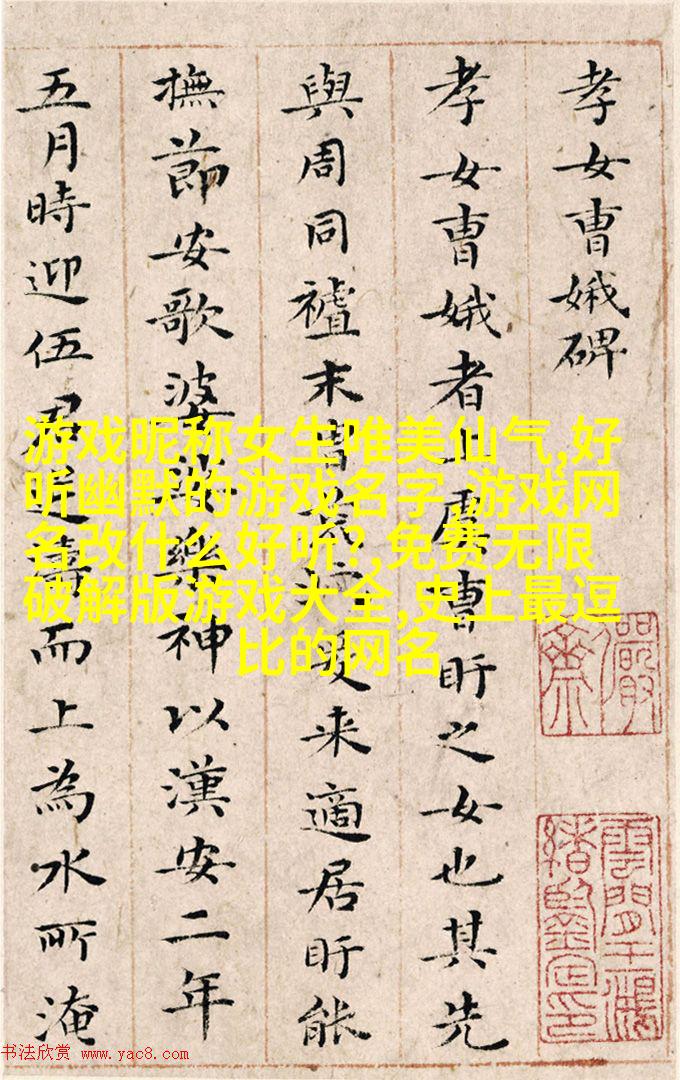 孝女曹娥碑
孝女曹娥者上虞曹盱之女也其先
與周同末胄荒爰來適居盱能
撫節安歌婆娑樂神以漢安二年
五月時迎伍君逆濤而上為水所淹
游戏昵称女生唯美仙气,好
听幽默的游戏名字,游戏网
名改什么好听?,免费无限
破解版游戏大全,史上最逗
比的网名
儼齋
雲間王鴻緒鑒定印
书法欣赏 www.yac8.com